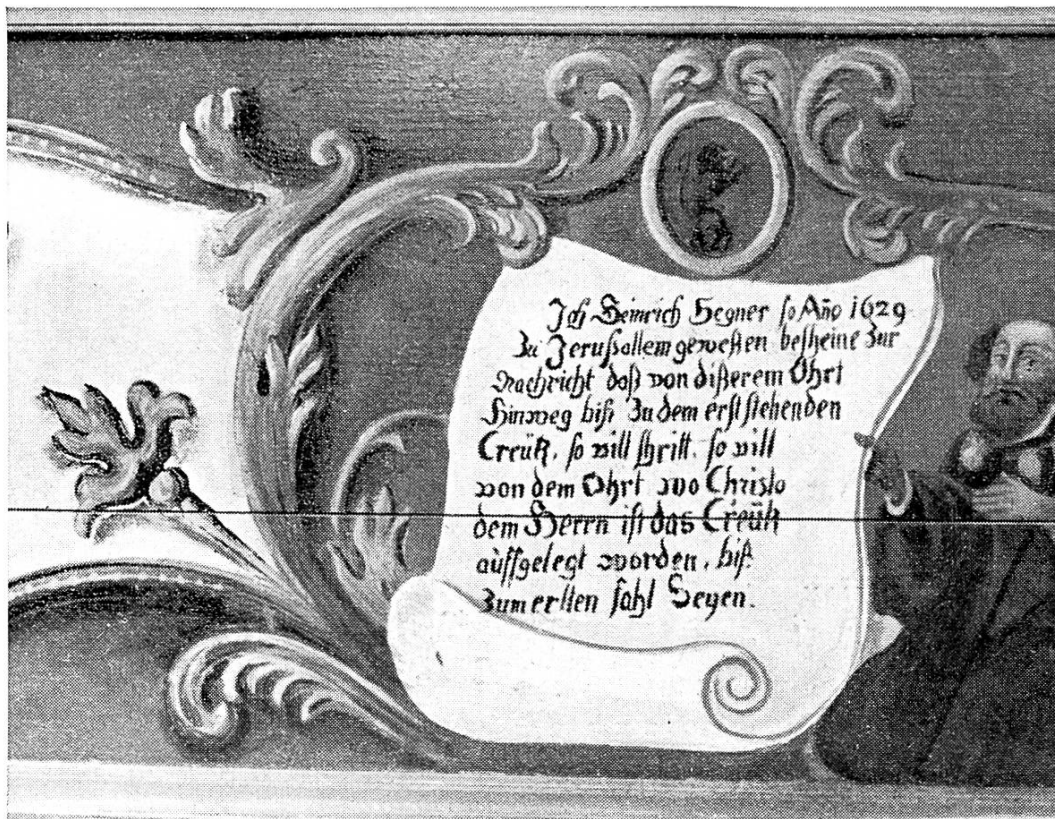 Ich Heinrich Hegner so Año 1629
Zu Jerusallem gewesten bescheine Zur
Nachricht daß von dißerem Ohrt
Hinweg biß Zu dem erst stehenden
Creütz, so vill schritt, so vill
von dem Ohrt wo Christo
dem Herrn ist das Creütz
aüffgelegt worden, biß
Zum ersten fahl Seyen.